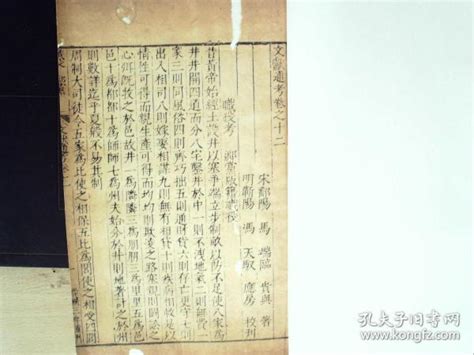 文獻通考卷之十二
宋鄱陽 馬 端臨 貴與 著
明蘄陽 馮 天馭 應房 校刊
職役考 歷代鄉黨版籍職役
昔黃帝始經土設井以塞爭端立步制畝以防不足使八家為
井井開四道而分八宅鑿井於中一則不洩地氣二則無費一
家三則同風俗四則齊巧拙五則通財貨六則存亡更守七則
出入相司八則嫁娶相媒九則無有相貸十則疾病相救是以
情性可得而親生產可得而均均則欺陵之路塞親則鬭訟之
心弭既牧之於邑故井一為鄰鄰三為朋朋三為里里五為
邑邑十為都都十為師師七為州夫始分於井則地著計之於州
則數詳迄乎夏殷不易其制
周制大司徒令五家為比使之相保五比為閭使之相受四閭
孔夫子旧书网